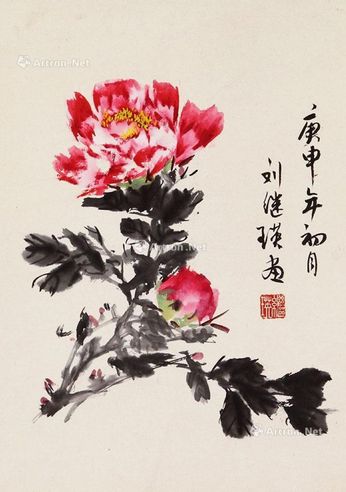 庚申年初月
刘继瑛画
Artron.Net
Artron.Net